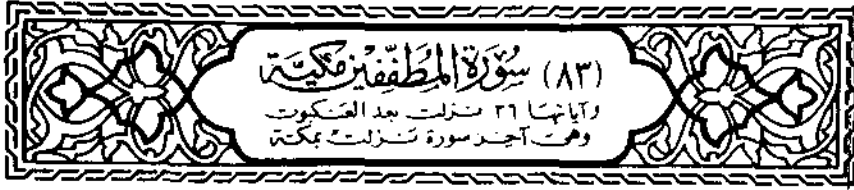 (٨٣) سُورَةُ المُطَفِّفِين مَكيَّة
وآياتها ٣٦ نزلت بعد العنكبوت
وهى آخر سورة نزلت بمكة